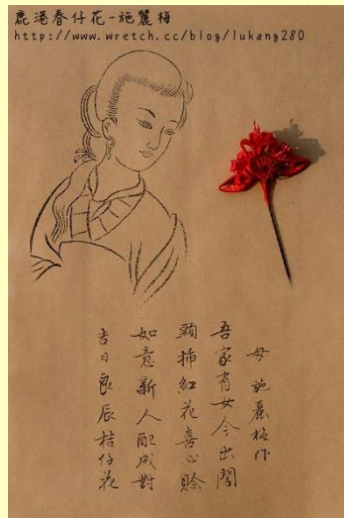 鹿港春仔花-施麗梅
http://www.wretch.cc/blog/lukang280
母 施麗梅作
吾家有女今出閣
頭插紅花喜心賒
如意新人配成對
吉日良辰桔仔花